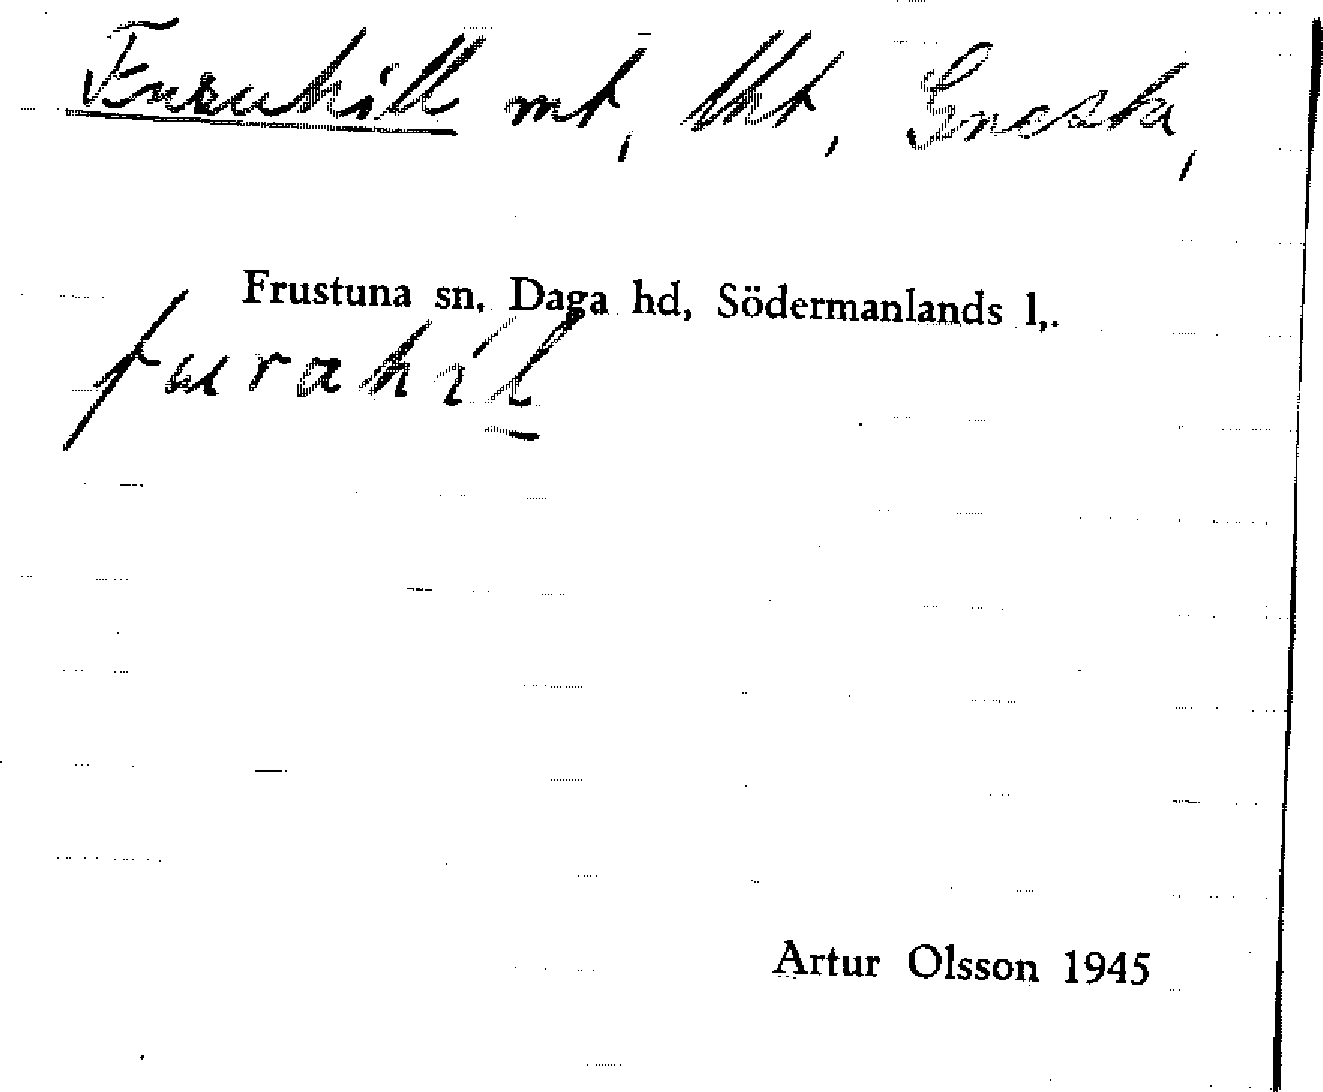 Furuhill mt, lht, Gnesta,
Frustuna sn, Daga hd, Södermanlands l,.
furahil
Artur Olsson 1945